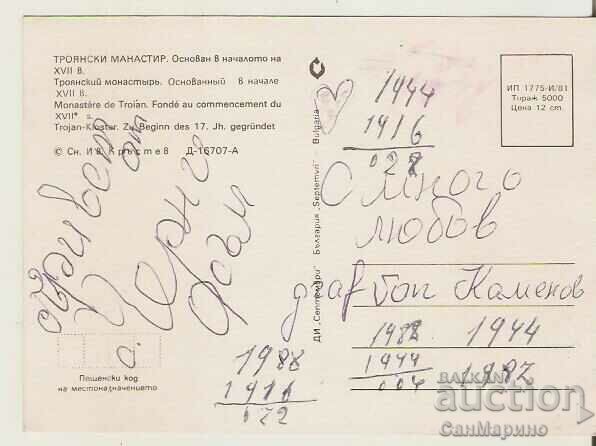 ТРОЯНСКИ МАНАСТИР. Основан в началото на
XVII в.
Троянский монастырь. Основанный в начале
XVII в.
Monastère de Troian. Fondé au commencement du
XVIIᵉ s.
Trojan-Kloster. Zu Beginn des 17. Jh. gegründet
© Сн. ИВ. Кръстев Д-16707-А
Привет
от
Черно
ДИ „Септември" България „Septemvri" - Bulgaria
ИП 1775-И/81
Тираж 5000
Цена 12 ст.
1944
1916
028
С много
любов
graf von Каменов
1988
1944
1944
004
1982
1988
1916
072
Пощенски код
на местоназначението
BALKAN
auction
СанМарино